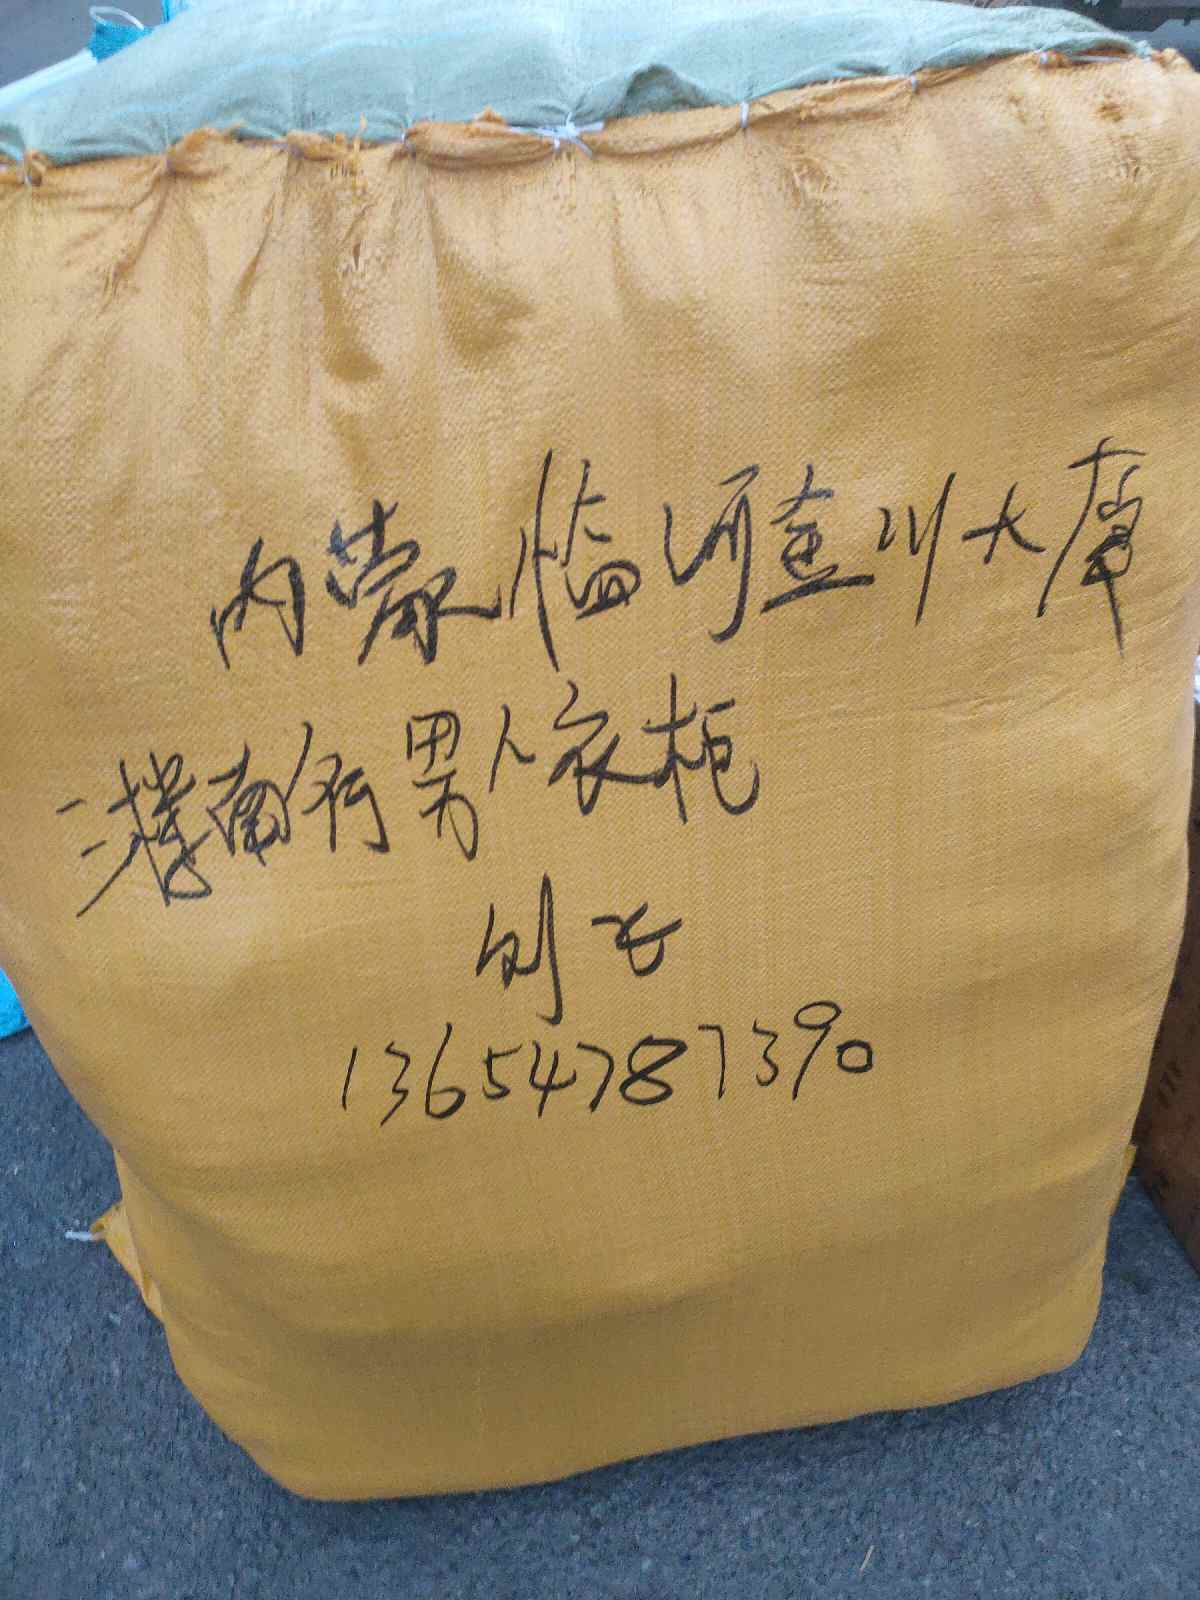 内蒙临河金川大库
港南行男人衣柜
刘飞
13654787390